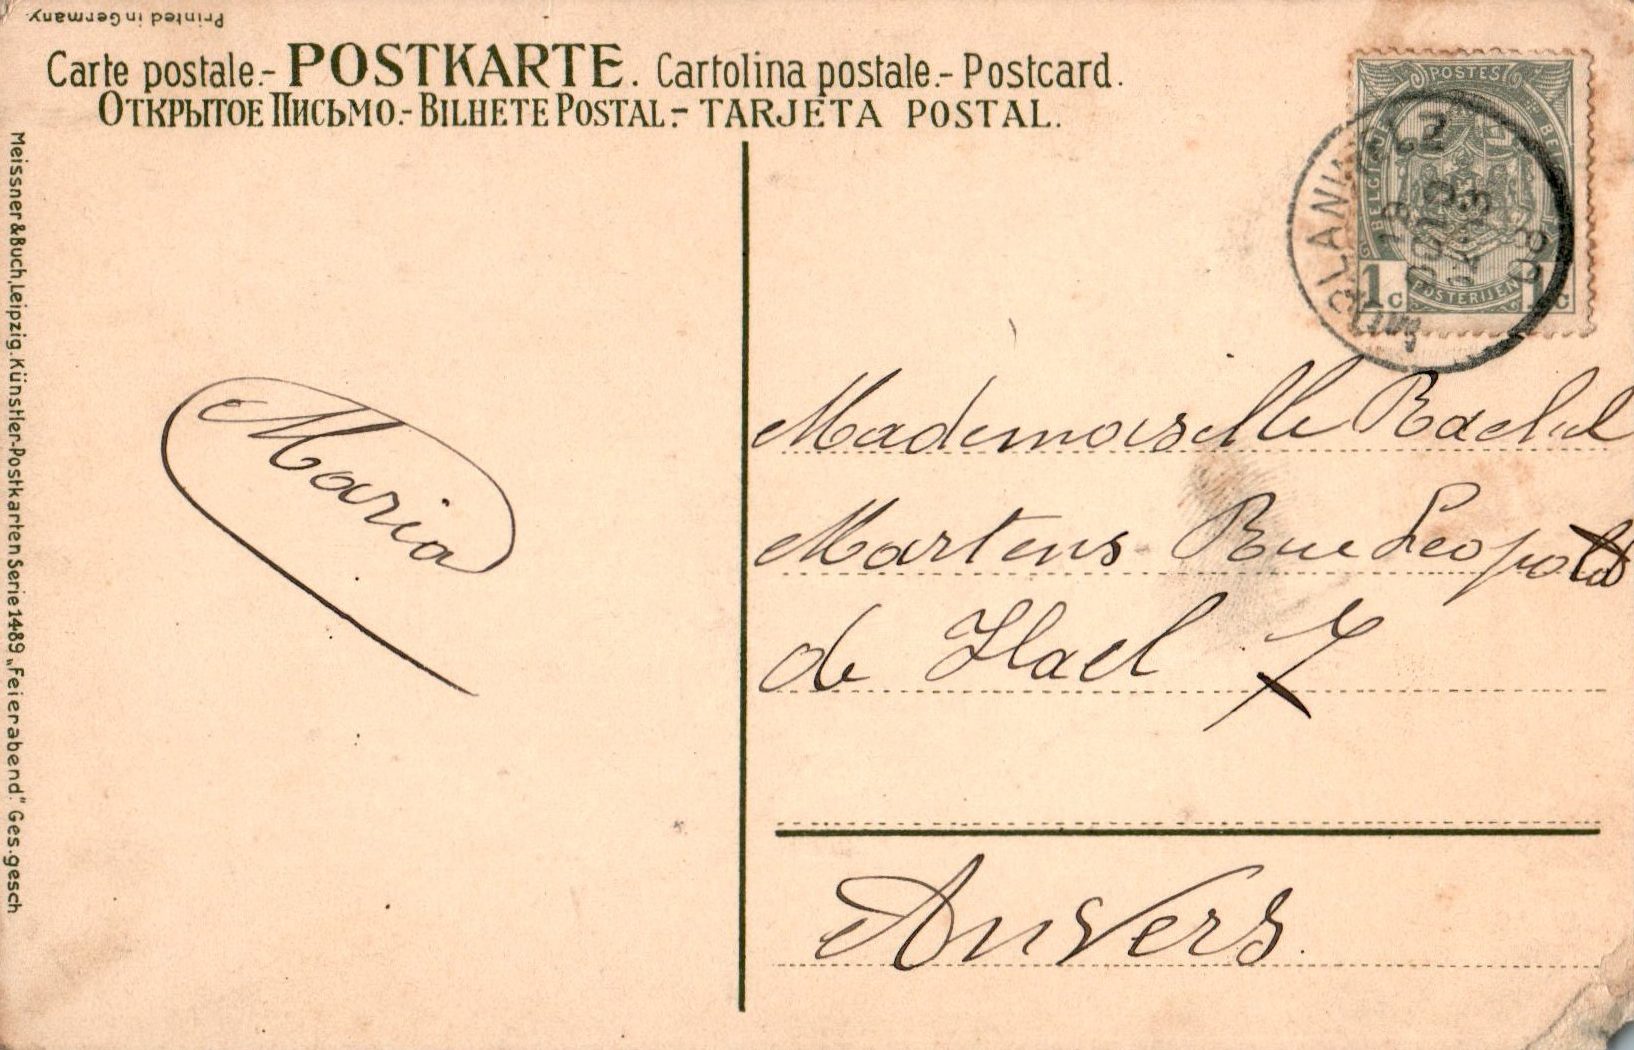 Printed in Germany
Carte postale.- POSTKARTE. Cartolina postale.- Postcard.
Открытое Письмо.- BILHETE POSTAL.- TARJETA POSTAL.
Meissner & Buch, Leipzig. Künstler-Postkarten Serie 1489 „Feierabend." Ges. gesch
POSTES
BELGIQUE
POSTERIJEN
1 c
1 c
Maria
Mademoiselle Rachel
Martens Rue Leopold
de Hael 7
Anvers